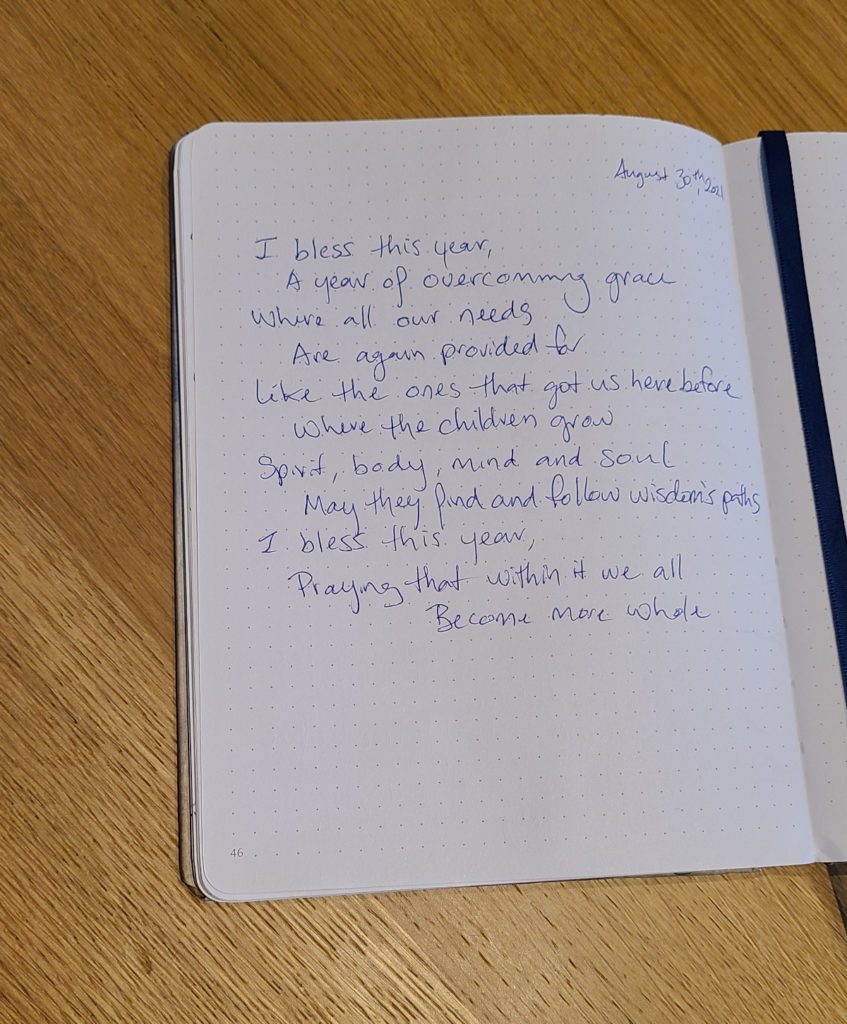 August 30th, 2021
I bless this year,
A year of overcomming grace
Where all our needs
Are again provided for
Like the ones that got us here before
Where the children grow
Spirit, body, mind and soul
May they find and follow wisdom's paths
I bless this year,
Praying that within it we all
Become more whole
46